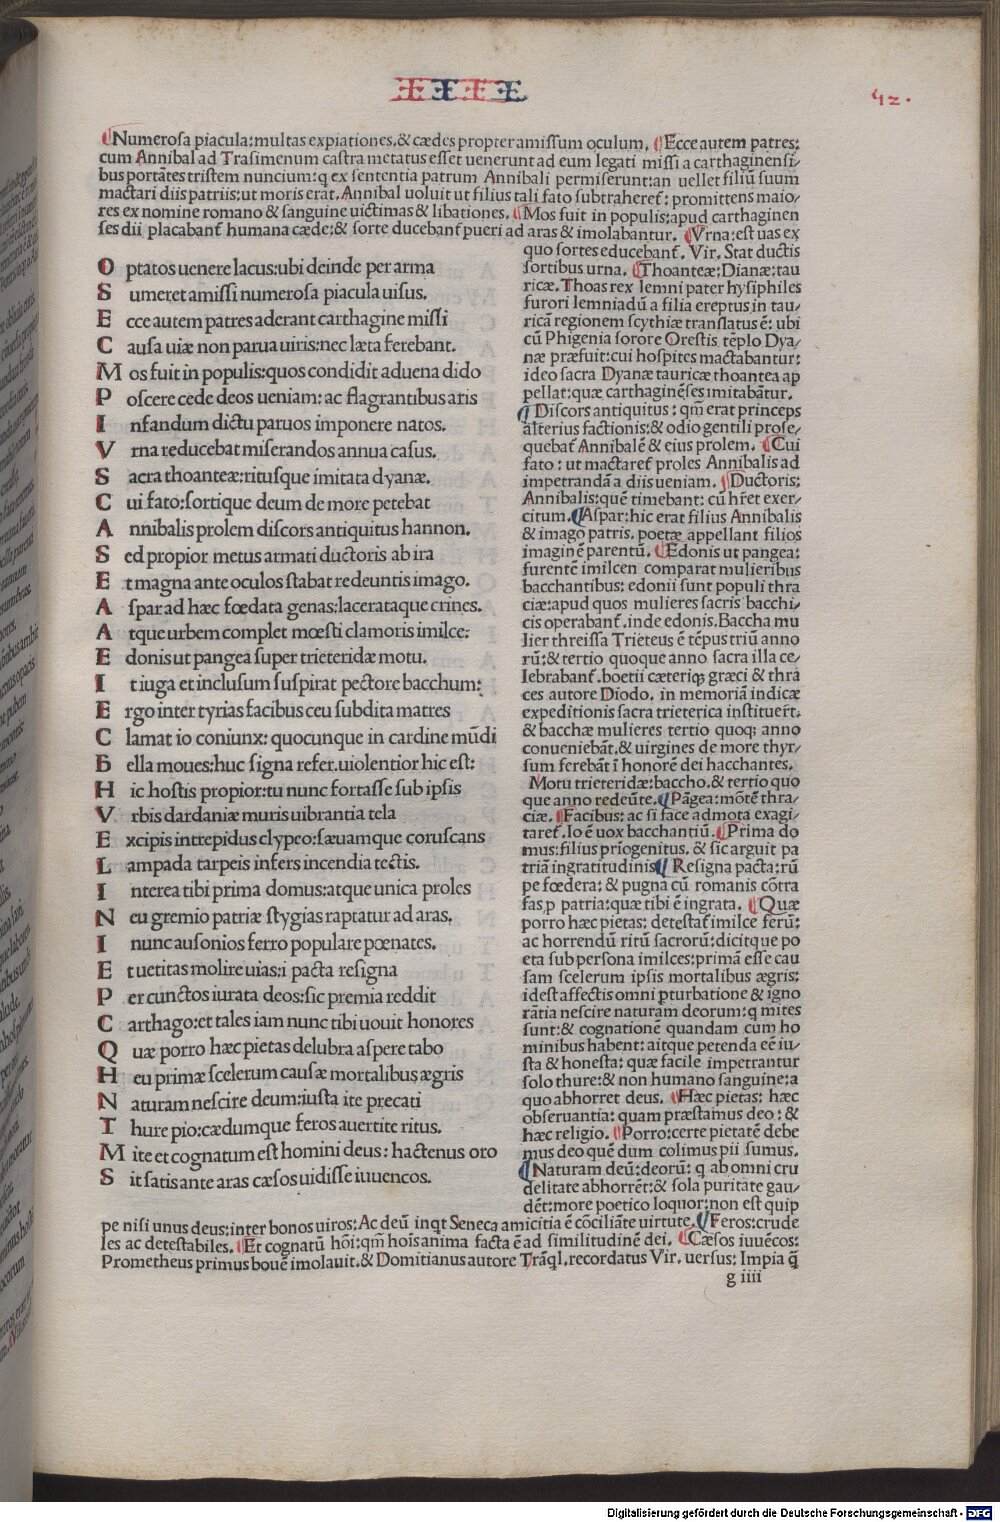 IIII
42.
¶Numerosa piacula:multas expiationes,& cædes propter amissum oculum. ¶Ecce autem patres:
cum Annibal ad Trasimenum castra metatus esset uenerunt ad eum legati missi a carthaginensi/
bus portãtes tristem nuncium:q ex sententia patrum Annibali permiserunt:an uellet filiũ suum
mactari diis patriis:ut moris erat. Annibal uoluit ut filius tali fato subtraheret: promittens maio/
res ex nomine romano & sanguine uictimas & libationes. ¶Mos fuit in populis:apud carthaginen
ses dii placabant humana cæde:& sorte ducebant pueri ad aras & imolabantur. ¶Vrna:est uas ex
O ptatos uenere lacus:ubi deinde per arma
S umeret amissi numerosa piacula uisus.
E cce autem patres aderant carthagine missi
C ausa uiæ non parua uiris:nec læta ferebant.
M os fuit in populis:quos condidit aduena dido
P oscere cede deos ueniam: ac flagrantibus aris
I nfandum dictu paruos imponere natos.
V rna reducebat miserandos annua casus.
S acra thoanteæ:ritusque imitata dyanæ.
C ui fato:sortique deum de more petebat
A nnibalis prolem discors antiquitus hannon.
S ed propior metus armati ductoris ab ira
E t magna ante oculos stabat redeuntis imago.
A spar ad hæc fœdata genas:lacerataque crines.
A tque urbem complet mœsti clamoris imilce:
E donis ut pangea super trieteridæ motu.
I t iuga et inclusum suspirat pectore bacchum:
E rgo inter tyrias facibus ceu subdita matres
C lamat io coniunx: quocunque in cardine mũdi
B ella moues:huc signa refer.uiolentior hic est:
H ic hostis propior:tu nunc fortasse sub ipsis
V rbis dardaniæ muris uibrantia tela
E xcipis intrepidus clypeo:sæuamque coruscans
L ampada tarpeis infers incendia tectis.
I nterea tibi prima domus:atque unica proles
N eu gremio patriæ stygias raptatur ad aras.
I nunc ausonios ferro populare pœnates.
E t uetitas molire uias:i pacta resigna
P er cunctos iurata deos:sic premia reddit
C arthago:et tales iam nunc tibi uouit honores
Q uæ porro hæc pietas delubra aspere tabo
H eu primæ scelerum causæ mortalibus ægris
N aturam nescire deum:iusta ite precati
T hure pio:cædumque feros auertite ritus.
M ite et cognatum est homini deus: hactenus oro
S it satis ante aras cæsos uidisse iuuencos.
quo sortes educebant. Vir. Stat ductis
sortibus urna. ¶Thoanteæ:Dianæ:tau
ricæ.Thoas rex lemni pater hysiphiles
furori lemniadũ a filia ereptus in tau/
ricã regionem scythiæ translatus ē: ubi
cũ Phigenia sorore Orestis tēplo Dya/
næ præfuit:cui hospites mactabantur:
ideo sacra Dyanæ tauricæ thoantea ap
pellat:quæ carthaginēses imitabãtur.
¶Discors antiquitus: qm̄ erat princeps
alterius factionis:& odio gentili prose/
quebat Annibalē & eius prolem. ¶Cui
fato: ut mactaret proles Annibalis ad
impetrandã a diis ueniam. ¶Ductoris:
Annibalis:quē timebant: cũ hr̄et exer/
citum.¶Aspar:hic erat filius Annibalis
& imago patris. poetæ appellant filios
imaginē parentũ. ¶Edonis ut pangea:
furentē imilcen comparat mulieribus
bacchantibus: edonii sunt populi thra
ciæ:apud quos mulieres sacris bacchi/
cis operabant.inde edonis.Baccha mu
lier threissa Trieteus ē tēpus triũ anno
rũ:& tertio quoque anno sacra illa ce/
lebrabant.boetii cæteriq; græci & thra
ces autore Diodo. in memoriã indicæ
expeditionis sacra trieterica instituert̄.
& bacchæ mulieres tertio quoq; anno
conueniebãt,& uirgines de more thyr/
sum ferebãt ĩ honorē dei hacchantes.
Motu trieteridæ:baccho.& tertio quo
que anno redeũte.¶Pãgea:mõtē thra/
ciæ. ¶Facibus: ac si face admota exagi/
taret.Io ē uox bacchantiũ.¶Prima do
mus:filius prĩogenitus. & sic arguit pa
triã ingratitudinis¶ Resigna pacta:rũ
pe fœdera: & pugna cũ romanis cõtra
fas,p patria:quæ tibi ē ingrata. ¶Quæ
porro hæc pietas: detestat imilce ferũ:
ac horrendũ ritũ sacrorũ:dicitque po
eta sub persona imilces:primã esse cau
sam scelerum ipsis mortalibus ægris:
idest affectis omni pturbatione & igno
rãtia nescire naturam deorum:q mites
sunt:& cognationē quandam cum ho
minibus habent: aitque petenda eē iu/
sta & honesta: quæ facile impetrantur
solo thure:& non humano sanguine:a
quo abhorret deus. ¶Hæc pietas: hæc
obseruantia: quam præstamus deo: &
hæc religio. ¶Porro:certe pietatē debe
mus deo quē dum colimus pii sumus.
¶Naturam deũ:deorũ: q ab omni cru
delitate abhorrēt:& sola puritate gau/
dēt:more poetico loquor:non est quip
pe nisi unus deus:inter bonos uiros: Ac deũ inqt Seneca amicitia ē cõciliãte uirtute.¶Feros:crude
les ac detestabiles.¶Et cognatũ hõi:qm̄ hoĩs anima facta ē ad similitudinē dei. ¶Cæsos iuuēcos:
Prometheus primus bouē imolauit.& Domitianus autore Trãql.recordatus Vir. uersus: Impia q̄
g iiii
Digitalisierung gefördert durch die Deutsche Forschungsgemeinschaft - DFG